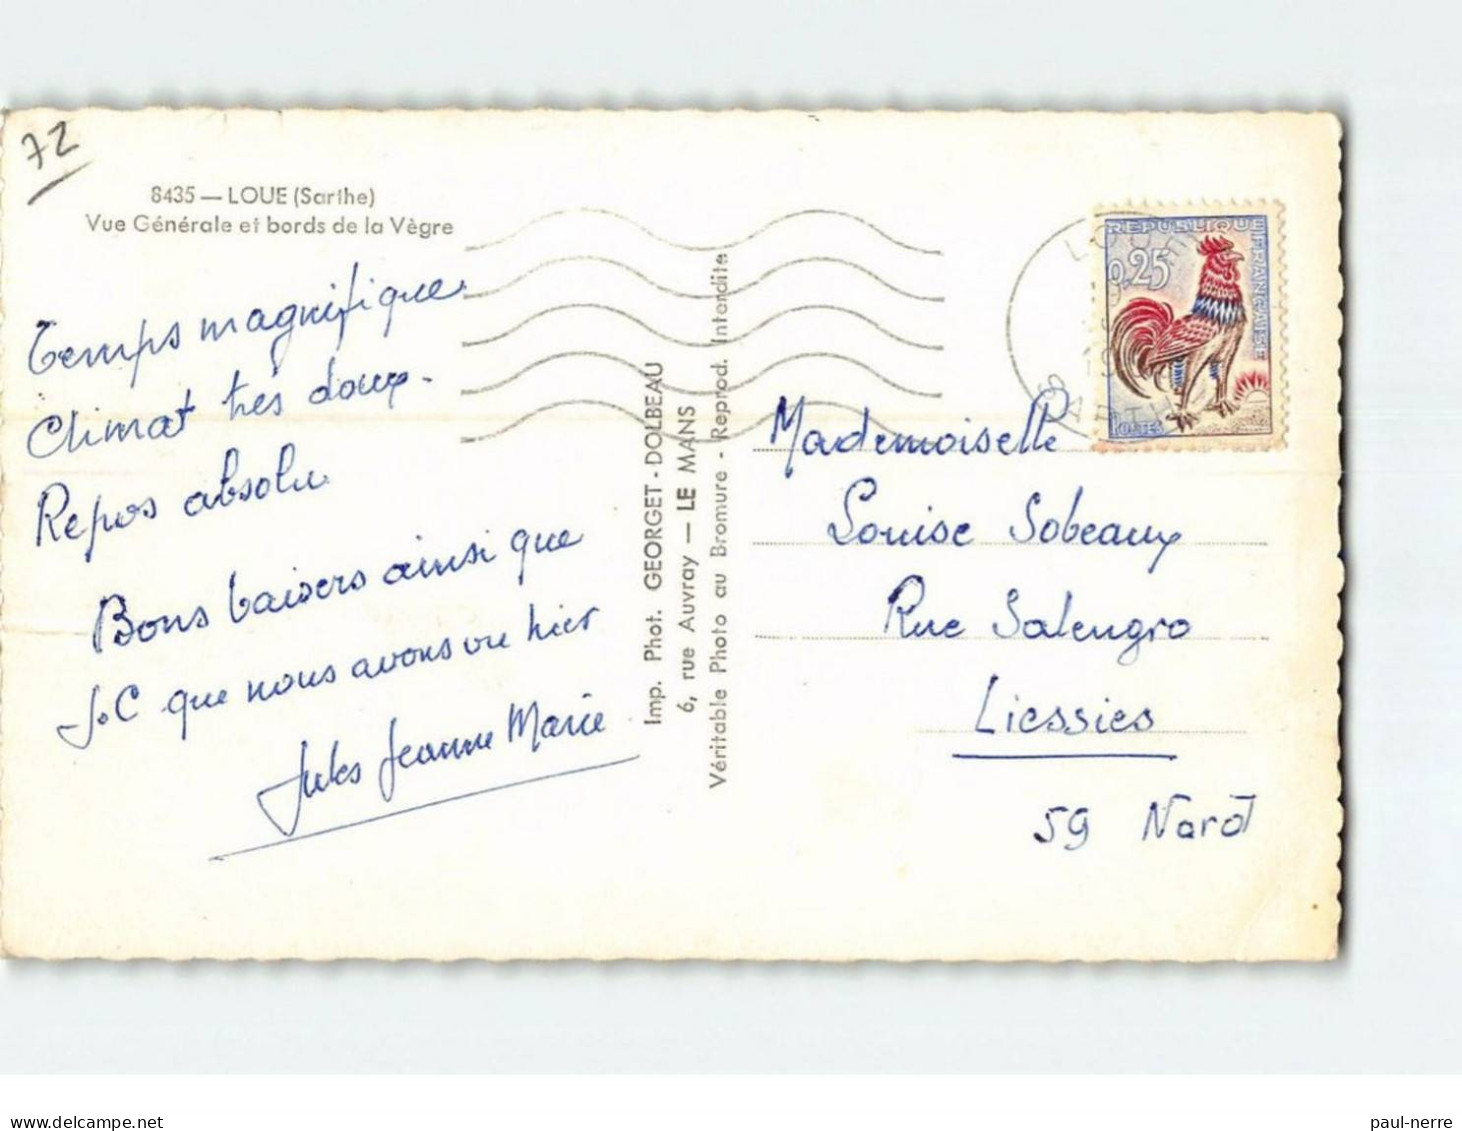 72
8435 — LOUE (Sarthe)
Vue Générale et bords de la Vègre
Temps magnifique
Climat très doux.
Repos absolu
Bons baisers ainsi que
J.C que nous avons vu hier
Jules Jeanne Marie
Imp. Phot. GEORGET - DOLBEAU
6, rue Auvray — LE MANS
Véritable Photo au Bromure - Reprod. Interdite
REPUBLIQUE FRANÇAISE
0,25
POSTES
SARTHE
Mademoiselle
Louise Sobeaux
Rue Salengro
Liessies
59 Nord
paul-nerre